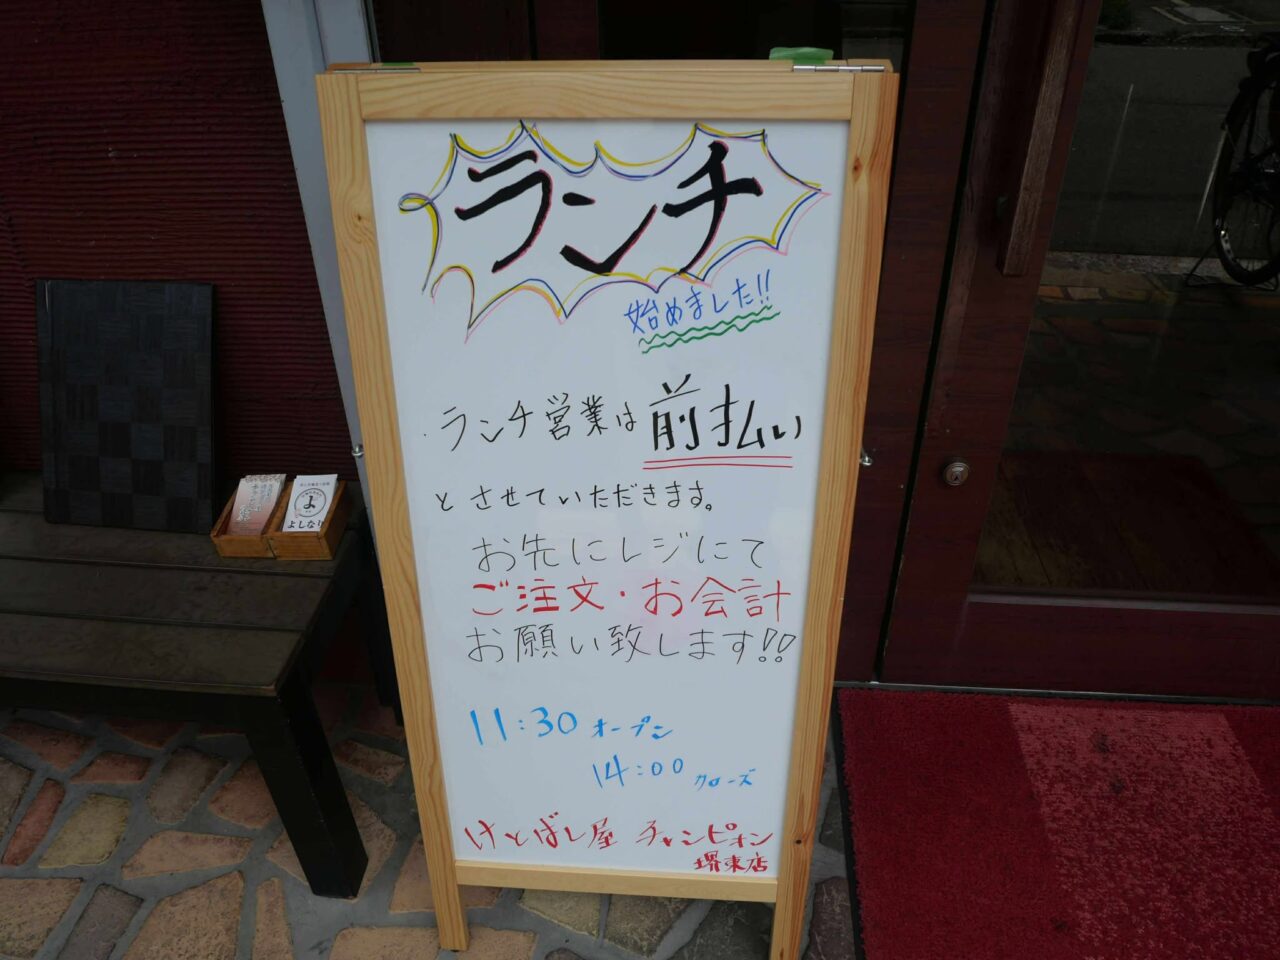 ランチ
始めました!!
・ランチ営業は前払い
とさせていただきます。
お先にレジにて
ご注文・お会計
お願い致します!!
11:30 オープン
14:00 クローズ
けとばし屋 チャンピオン
堺東店
よ
よしなり